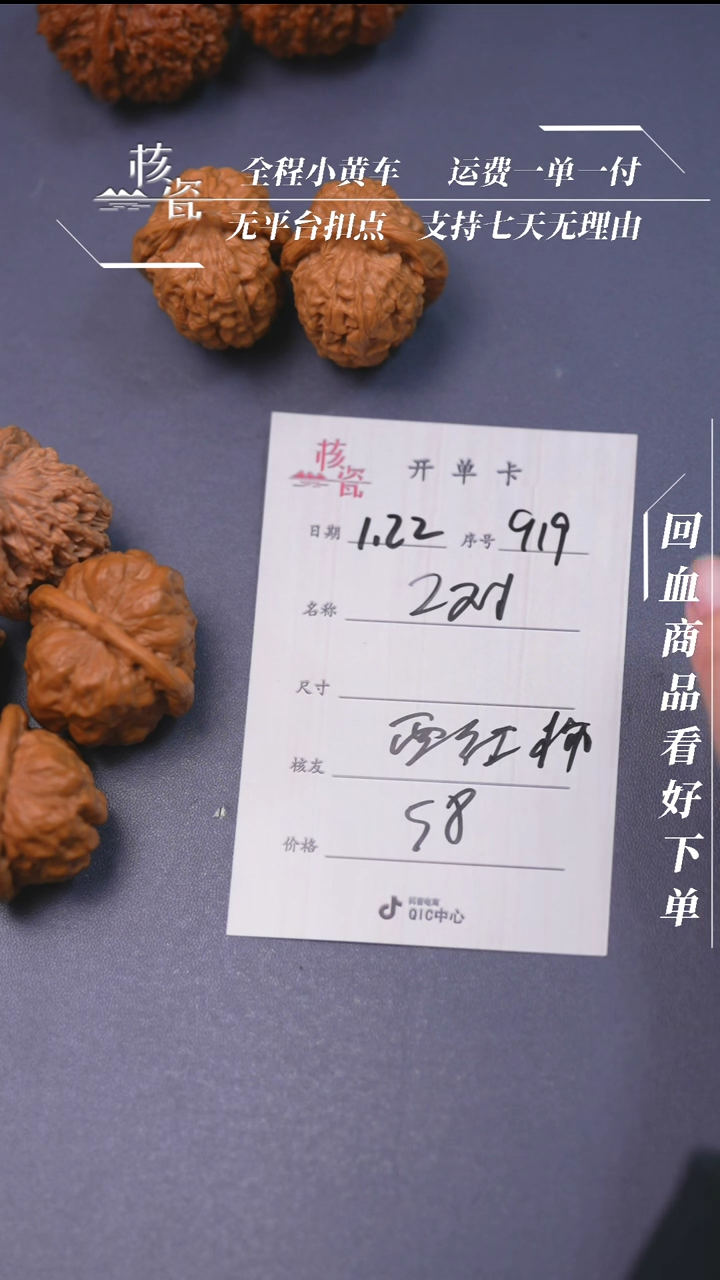 核瓷
全程小黄车 运费一单一付
无平台扣点 支持七天无理由
核瓷 开单卡
日期 1.22 序号 919
名称
尺寸
核友 西红柿
价格 58
抖音电商
QIC中心
回血商品看好下单